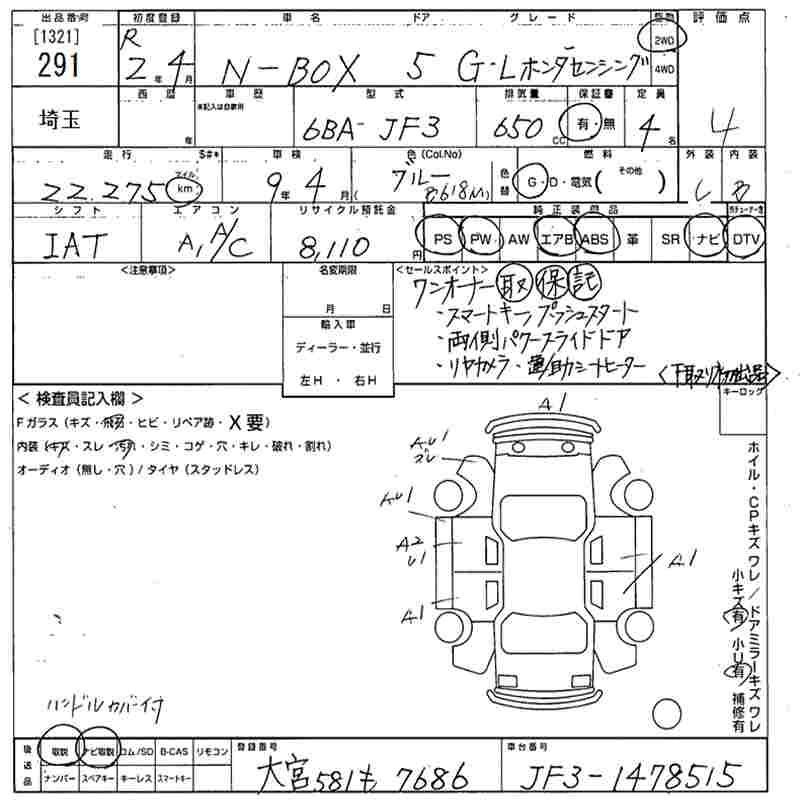 出品番号 初度登録 車名 ドア グレード 駆動 評価点
[1321] R 2WD
291 2年 4月 N-BOX 5 G・Lホンダセンシング 4WD
西暦 車歴 型式 排気量 保証書 定員
※記入は自家用
埼玉 年 6BA-JF3 650cc 有・無 4名 4
走行 マイル S#* 車検 色(Col.No) 燃料 外装 内装
22.275 km 9年 4月 ブルー B618M 色替 G・D・電気( その他 ) B
シフト エアコン リサイクル預託金 純正装備品
IAT A/C 8,110円 PS PW AW エアB ABS 革 SR ナビ DTV
<注意事項> 名変期限 <セールスポイント>
月 日 ワンオーナー 取 保 記
輸入車 ・スマートキー/プッシュスタート
ディーラー・並行 ・両側パワースライドドア
左H・右H ・リヤカメラ・運/助シートヒーター
<下取り初出品>
キーロック
<検査員記入欄>
Fガラス(キズ・飛石・ヒビ・リペア跡・X要)
内装(キズ・スレ・汚れ・シミ・コゲ・穴・キレ・破れ・割れ)
オーディオ(無し・穴)/タイヤ(スタッドレス)
A1
AU1
スレ
AU1
A2
U1
A1
A1
ホイル・CPキズ ワレ/ドアミラーキズ ワレ
小キズ有 小U有 補修有
ハンドルカバー付
後送品 取説 ナビ取説 ロム/SD B-CAS リモコン 登録番号 車台番号
ナンバー スペアキー キーレス スマートキー 大宮 581も 7686 JF3-1478515